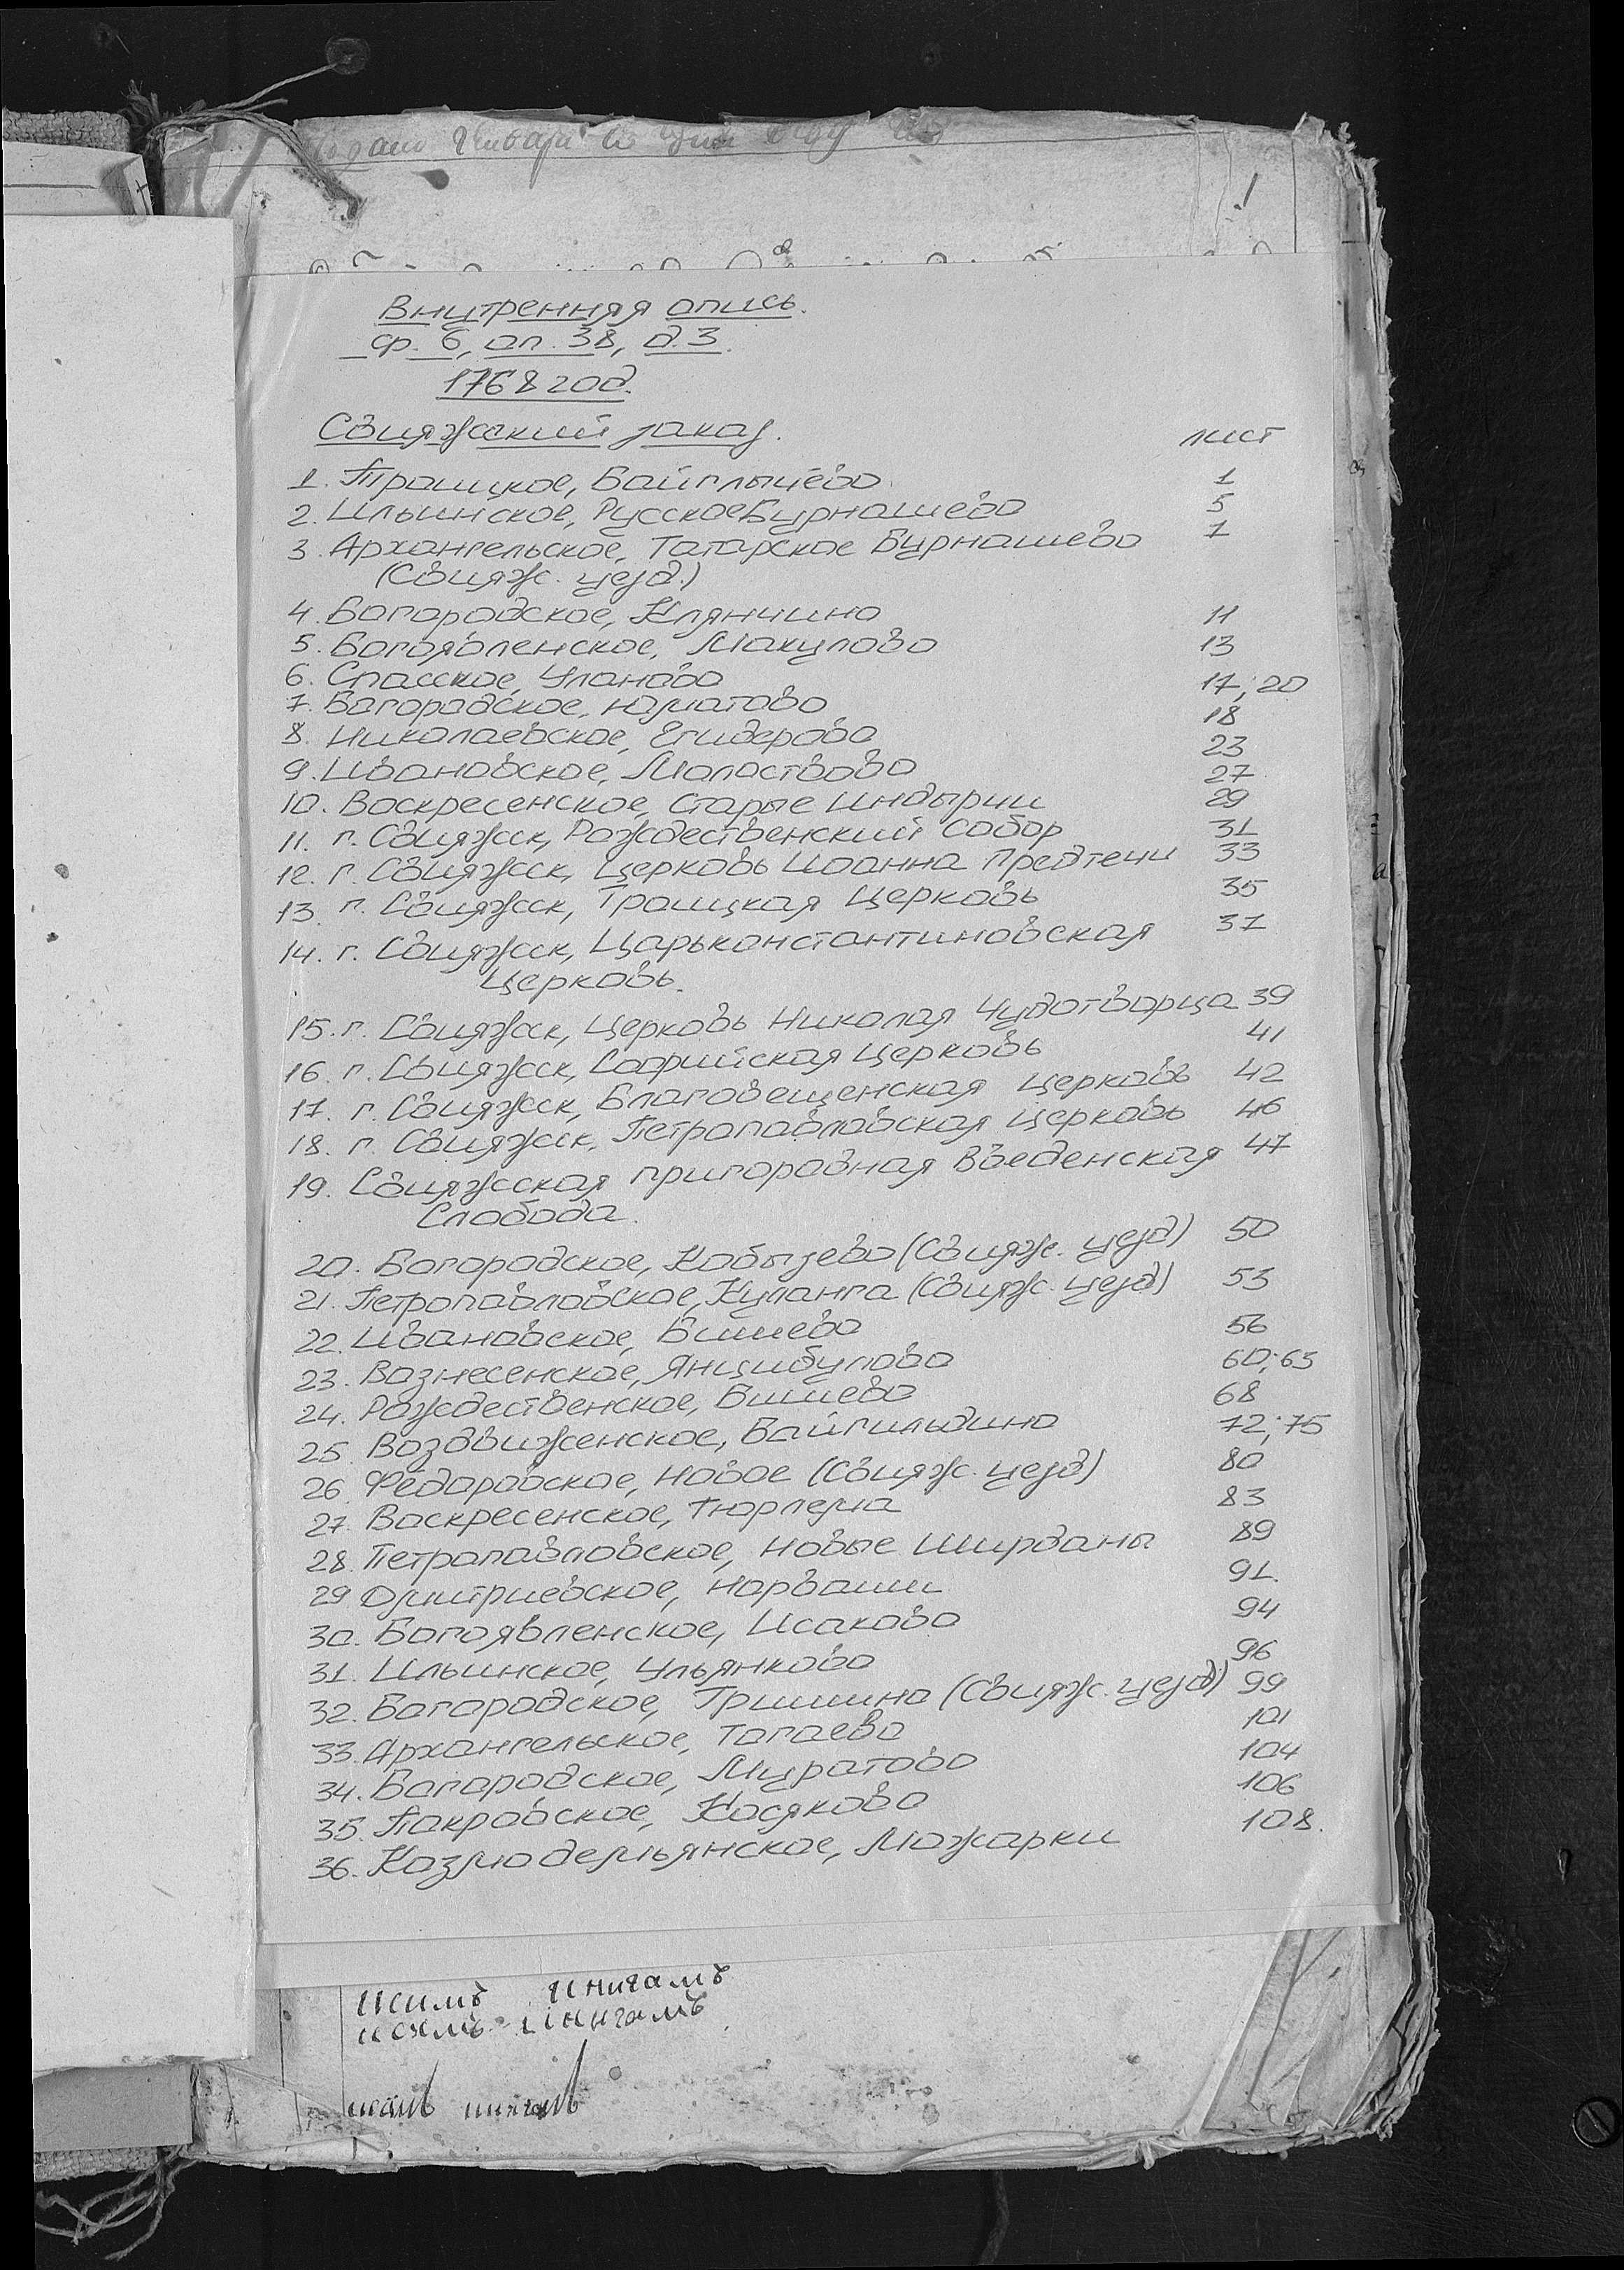 1
Внутренняя опись.
ф. 6, оп. 38, д. 3.
1768 год.
Свияжский заказ.
лист
1. Троицкое, Байглычёво 1
2. Ильинское, Русское Бурнашево 5
3. Архангельское, Татарское Бурнашево 7
(Свияж. уезд.)
4. Богородское, Клянчино 11
5. Богоявленское, Макулово 13
6. Спасское, Уланово 17; 20
7. Богородское, Юматово 18
8. Николаевское, Егидерово 23
9. Ивановское, Молоствово 27
10. Воскресенское, Старые Индырчи 29
11. г. Свияжск, Рождественский собор 31
12. г. Свияжск, Церковь Иоанна Предтечи 33
13. г. Свияжск, Троицкая Церковь 35
14. г. Свияжск, Царьконстантиновская 37
Церковь.
15. г. Свияжск, Церковь Николая Чудотворца 39
16. г. Свияжск, Софийская Церковь 41
17. г. Свияжск, Благовещенская церковь 42
18. г. Свияжск, Петропавловская церковь 46
19. Свияжская пригородная Введенская 47
Слобода.
20. Богородское, Кобызево (Свияж. уезд) 50
21. Петропавловское, Куланга (Свияж. уезд) 53
22. Ивановское, Бишево 56
23. Вознесенское, Янцибулово 60; 63
24. Рождественское, Бишево 68
25. Воздвиженское, Байгильдино 72; 75
26. Фёдоровское, Новое (Свияж. уезд) 80
27. Воскресенское, Тюрлема 83
28. Петропавловское, Новые Ширданы 89
29 Дмитриевское, Норваши 91.
30. Богоявленское, Исаково 94
31. Ильинское, Ульянково 96
32. Богородское, Гришино (Свияж. уезд) 99
33. Архангельское, Тогаево 101
34. Богородское, Муратово 104
35. Покровское, Косяково 106
36. Козмодемьянское, Можарки 108.